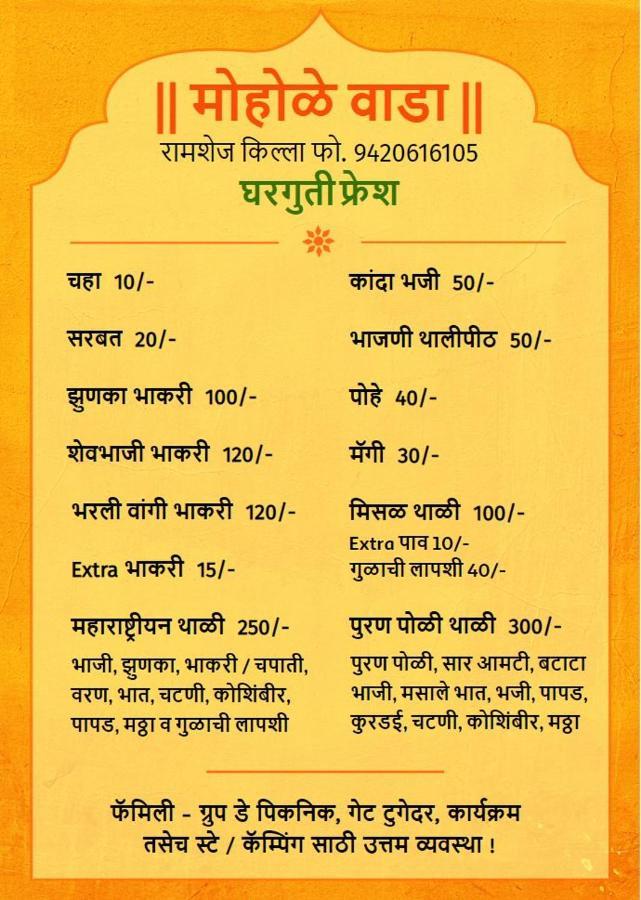 || मोहोळे वाडा ||
रामशेज किल्ला फो. 9420616105
घरगुती फ्रेश
चहा 10/-
सरबत 20/-
झुणका भाकरी 100/-
शेवभाजी भाकरी 120/-
भरली वांगी भाकरी 120/-
Extra भाकरी 15/-
महाराष्ट्रीयन थाळी 250/-
भाजी, झुणका, भाकरी / चपाती,
वरण, भात, चटणी, कोशिंबीर,
पापड, मठ्ठा व गुळाची लापशी
कांदा भजी 50/-
भाजणी थालीपीठ 50/-
पोहे 40/-
मॅगी 30/-
मिसळ थाळी 100/-
Extra पाव 10/-
गुळाची लापशी 40/-
पुरण पोळी थाळी 300/-
पुरण पोळी, सार आमटी, बटाटा
भाजी, मसाले भात, भजी, पापड,
कुरडई, चटणी, कोशिंबीर, मठ्ठा
फॅमिली - ग्रुप डे पिकनिक, गेट टुगेदर, कार्यक्रम
तसेच स्टे / कॅम्पिंग साठी उत्तम व्यवस्था !